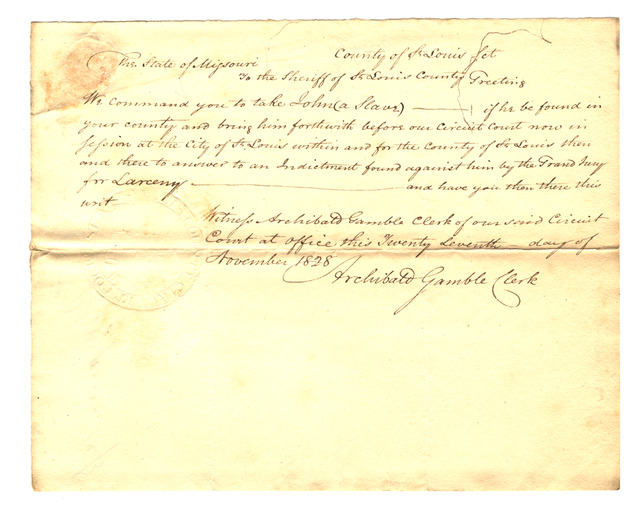 County of St Louis Sct
The State of Missouri
To the Sheriff of St Louis County Greeting
We command you to take John (a Slave) ——— if he be found in
your county and bring him forthwith before our Circuit Court now in
session at the City of St Louis within and for the County of St Louis then
and there to answer to an Indictment found against him by the Grand Jury
for Larceny ——— and have you then there this
writ
Witness Archibald Gamble Clerk of our said Circuit
Court at office this Twenty Seventh day of
November 1828
Archibald Gamble Clerk